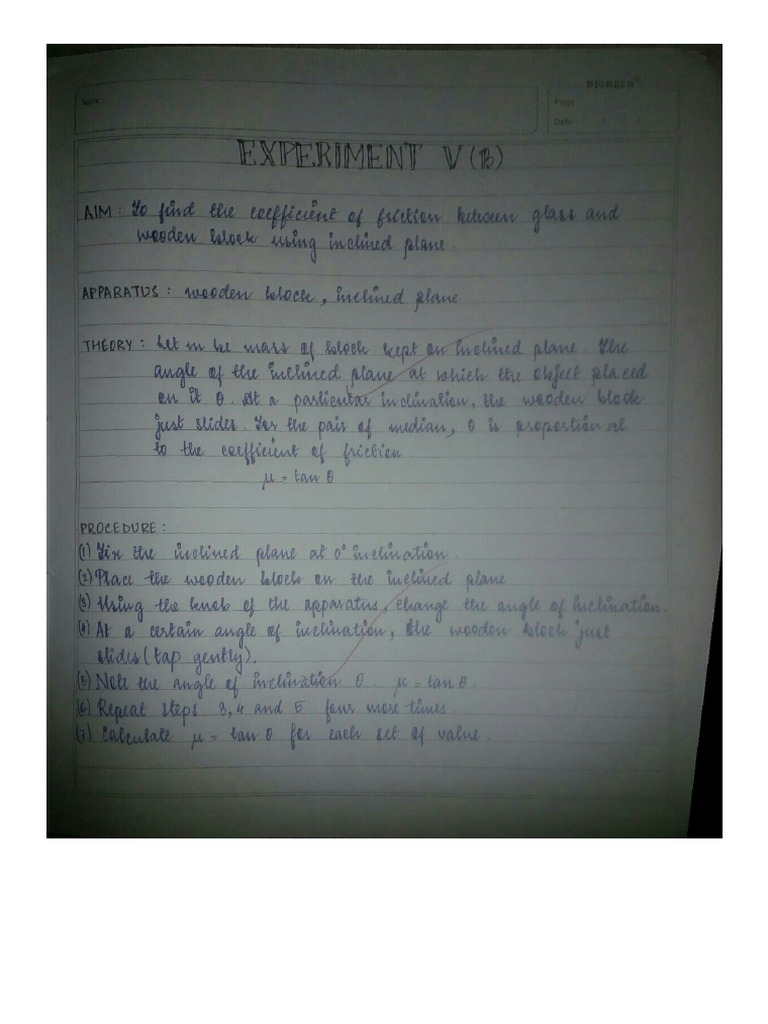 PIONEER
Date :
Page
Date / /
EXPERIMENT V (B)
AIM : To find the coefficient of friction between glass and
wooden block using inclined plane.
APPARATUS : wooden block, inclined plane
THEORY : Let m be mass of block kept on inclined plane. The
angle of the inclined plane at which the object placed
on it θ. At a particular inclination, the wooden block
just slides. For the pair of median, θ is proportion al
to the coefficient of friction
μ = tan θ
PROCEDURE :
(1) Fix the inclined plane at 0° inclination.
(2) Place the wooden block on the inclined plane
(3) Using the knob of the apparatus, change the angle of inclination.
(4) At a certain angle of inclination, the wooden block just
slides (tap gently).
(5) Note the angle of inclination θ. μ = tan θ.
(6) Repeat steps 3, 4 and 5 four more times.
(7) Calculate μ = tan θ for each set of value.